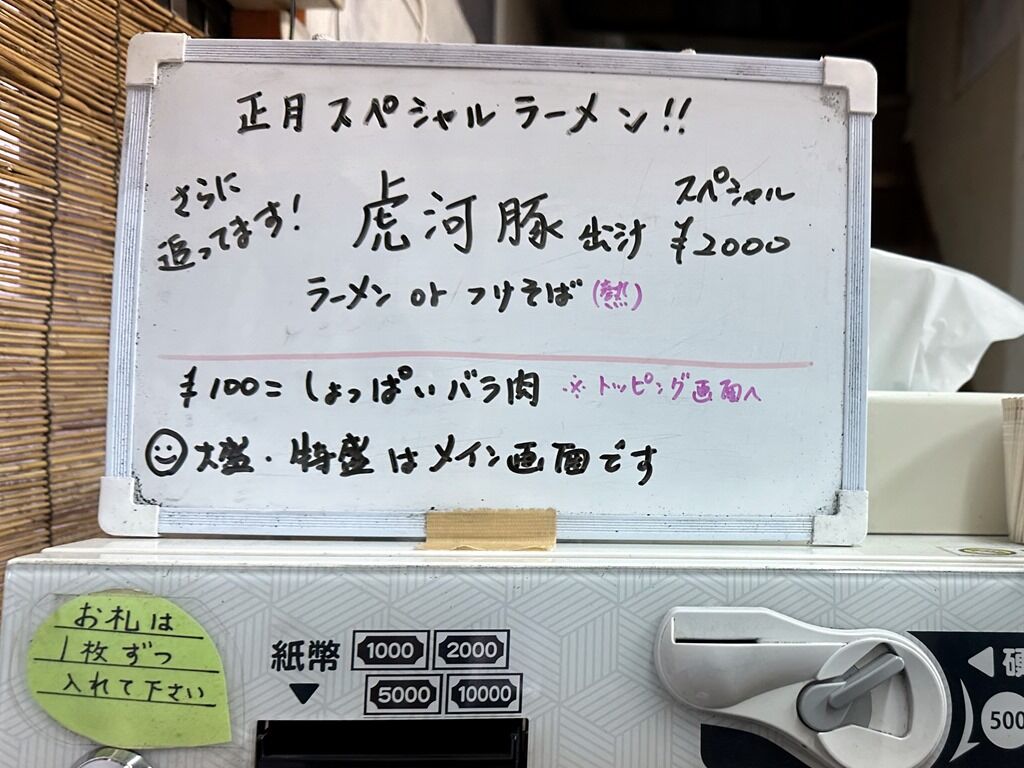 正月スペシャルラーメン!!
さらに
追ってます!
虎河豚出汁
スペシャル
¥2000
ラーメン or つけそば(熱)
¥100=しょっぱいバラ肉 ※トッピング画面へ
大盛・特盛はメイン画面です
お札は
1枚ずつ
入れて下さい
紙幣
1000 2000
5000 10000
硬
500